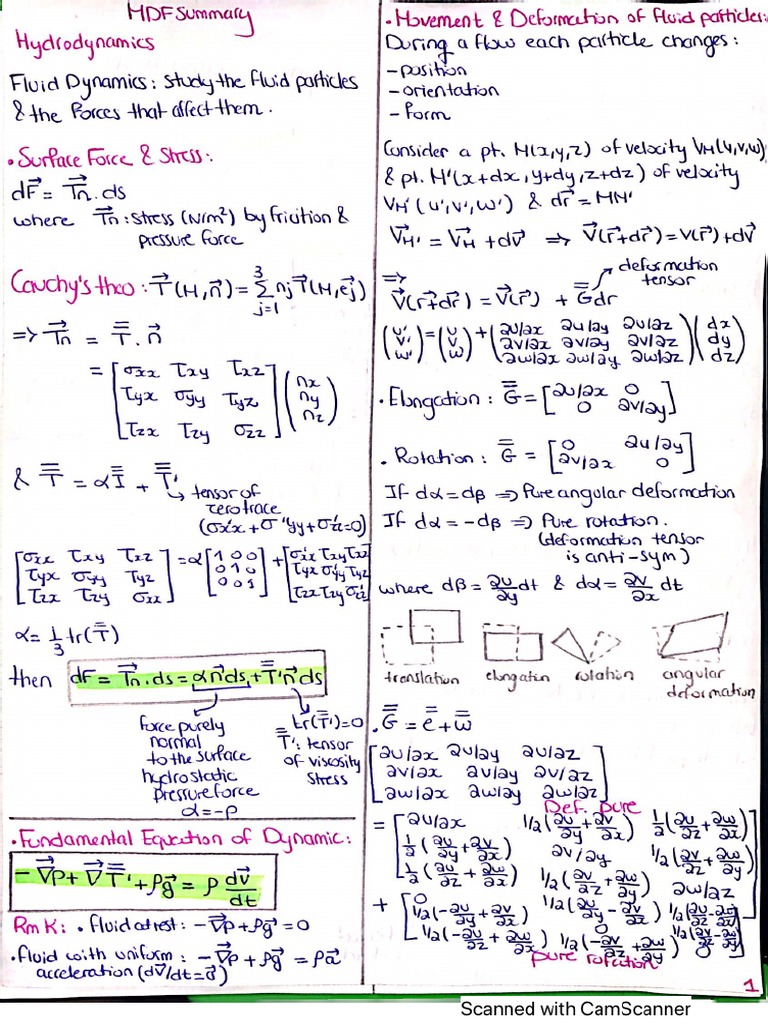 MDF Summary
Hydrodynamics
Fluid Dynamics: study the fluid particles
& the forces that affect them.
• Surface Force & Stress:
dF⃗ = T⃗n . ds
where T⃗n : stress (N/m²) by friction &
pressure force
Cauchy's theo: T⃗(M,n⃗) = Σ_{j=1}^{3} nj T⃗(M,e⃗j)
=> T⃗n = T̿ . n⃗
= [σxx τxy τxz] (nx)
[τyx σyy τyz] (ny)
[τzx τzy σzz] (nz)
& T̿ = αI̿ + T̿'
↳ tensor of
zero trace
(σ'xx + σ'yy + σ'zz=0)
[σxx τxy τxz] = α [1 0 0] + [σ'xx τxy τxz]
[τyx σyy τyz] [0 1 0] [τyx σ'yy τyz]
[τzx τzy σzz] [0 0 1] [τzx τzy σ'zz]
α = 1/3 tr(T̿)
then dF = T⃗n . ds = αn⃗ds + T̿'n⃗ds
force purely
normal
to the surface
hydrostatic
pressure force
α = -p
tr(T̿') = 0
T̿' : tensor
of viscosity
stress
• Fundamental Equation of Dynamic:
-∇⃗p + ∇⃗T̿' + ρg⃗ = ρ dv⃗/dt
RmK: • fluid at rest: -∇⃗p + ρg⃗ = 0
• fluid with uniform : -∇⃗p + ρg⃗ = ρa⃗
acceleration (dv⃗/dt = a⃗)
• Movement & Deformation of fluid particles:
During a flow each particle changes:
- position
- orientation
- form
Consider a pt. M(x,y,z) of velocity VM(u,v,w)
& pt. M'(x+dx, y+dy, z+dz) of velocity
VM'(u',v',w') & dr⃗ = MM'
V⃗M' = V⃗M + dv⃗ => V⃗(r⃗+dr⃗) = V(r⃗) + dv⃗
=> deformation
tensor
V⃗(r⃗+dr⃗) = V⃗(r⃗) + G̿dr
(u') = (u) + (∂u/∂x ∂u/∂y ∂u/∂z) (dx)
(v') (v) (∂v/∂x ∂v/∂y ∂v/∂z) (dy)
(w') (w) (∂w/∂x ∂w/∂y ∂w/∂z) (dz)
• Elongation: G̿ = [∂u/∂x 0]
[0 ∂v/∂y]
• Rotation: G̿ = [0 ∂u/∂y]
[∂v/∂x 0]
If dα = dβ => Pure angular deformation
If dα = -dβ => Pure rotation.
(deformation tensor
is anti-sym)
where dβ = ∂u/∂y dt & dα = ∂v/∂x dt
translation elongation rotation angular
deformation
• G̿ = e̿ + w̿
[∂u/∂x ∂u/∂y ∂u/∂z]
[∂v/∂x ∂v/∂y ∂v/∂z]
[∂w/∂x ∂w/∂y ∂w/∂z]
Def. pure
= [∂u/∂x 1/2(∂u/∂y + ∂v/∂x) 1/2(∂u/∂z + ∂w/∂x)]
[1/2(∂u/∂y + ∂v/∂x) ∂v/∂y 1/2(∂v/∂z + ∂w/∂y)]
[1/2(∂u/∂z + ∂w/∂x) 1/2(∂v/∂z + ∂w/∂y) ∂w/∂z]
+ [0 1/2(∂u/∂y - ∂v/∂x) 1/2(∂u/∂z - ∂w/∂x)]
[1/2(-∂u/∂y + ∂v/∂x) 0 1/2(∂v/∂z - ∂w/∂y)]
[1/2(-∂u/∂z + ∂w/∂x) 1/2(-∂v/∂z + ∂w/∂y) 0]
pure rotation
1
Scanned with CamScanner